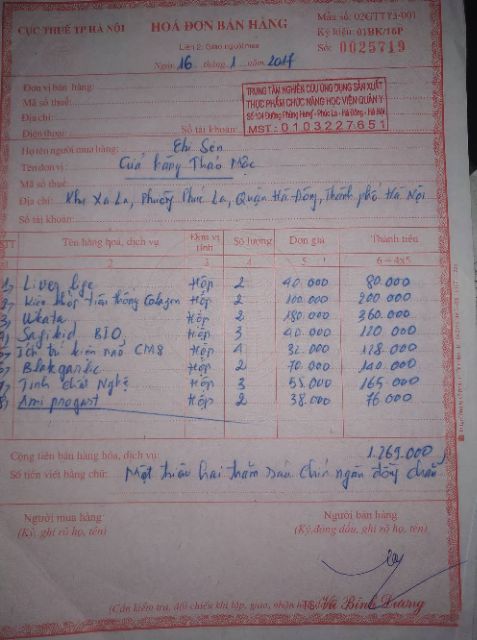 CỤC THUẾ TP HÀ NỘI
HOÁ ĐƠN BÁN HÀNG
Mẫu số: 02GTTT3-001
Liên 2: Giao người mua
Ký hiệu: 01BK/16P
Số: 0025719
Ngày 16 tháng 1 năm 2017
Đơn vị bán hàng:
Mã số thuế:
Địa chỉ:
Điện thoại: Số tài khoản:
TRUNG TÂM NGHIÊN CỨU ỨNG DỤNG SẢN XUẤT
THỰC PHẨM CHỨC NĂNG HỌC VIỆN QUÂN Y
Số 104 Đường Phùng Hưng - Phúc La - Hà Đông - Hà Nội
MST: 0103227651
Họ tên người mua hàng: Chị Sen
Tên đơn vị: Cửa hàng Thảo Mộc
Mã số thuế:
Địa chỉ: Khu Xa La, Phường Phúc La, Quận Hà Đông, Thành phố Hà Nội
Số tài khoản:
STT Tên hàng hoá, dịch vụ Đơn vị tính Số lượng Đơn giá Thành tiền
2 3 4 5 6=4x5
1, Liver Hộp 2 40.000 80.000
2, Colagen Hộp 2 100.000 200.000
3, Hộp 2 180.000 360.000
Safikid BIO Hộp 3 40.000 120.000
Ích trí kiện não CM8 Hộp 4 32.000 128.000
Blakgarlic Hộp 2 70.000 140.000
Tinh chất Nghệ Hộp 3 55.000 165.000
Ami progast Hộp 2 38.000 76.000
Cộng tiền bán hàng hóa, dịch vụ: 1.269.000
Số tiền viết bằng chữ: Một triệu hai trăm sáu chín ngàn đồng chẵn
Người mua hàng
(Ký, ghi rõ họ, tên)
Người bán hàng
(Ký, đóng dấu, ghi rõ họ, tên)
(Cần kiểm tra, đối chiếu khi lập, giao, nhận hoá đơn)
TS. Vũ Bình Dương